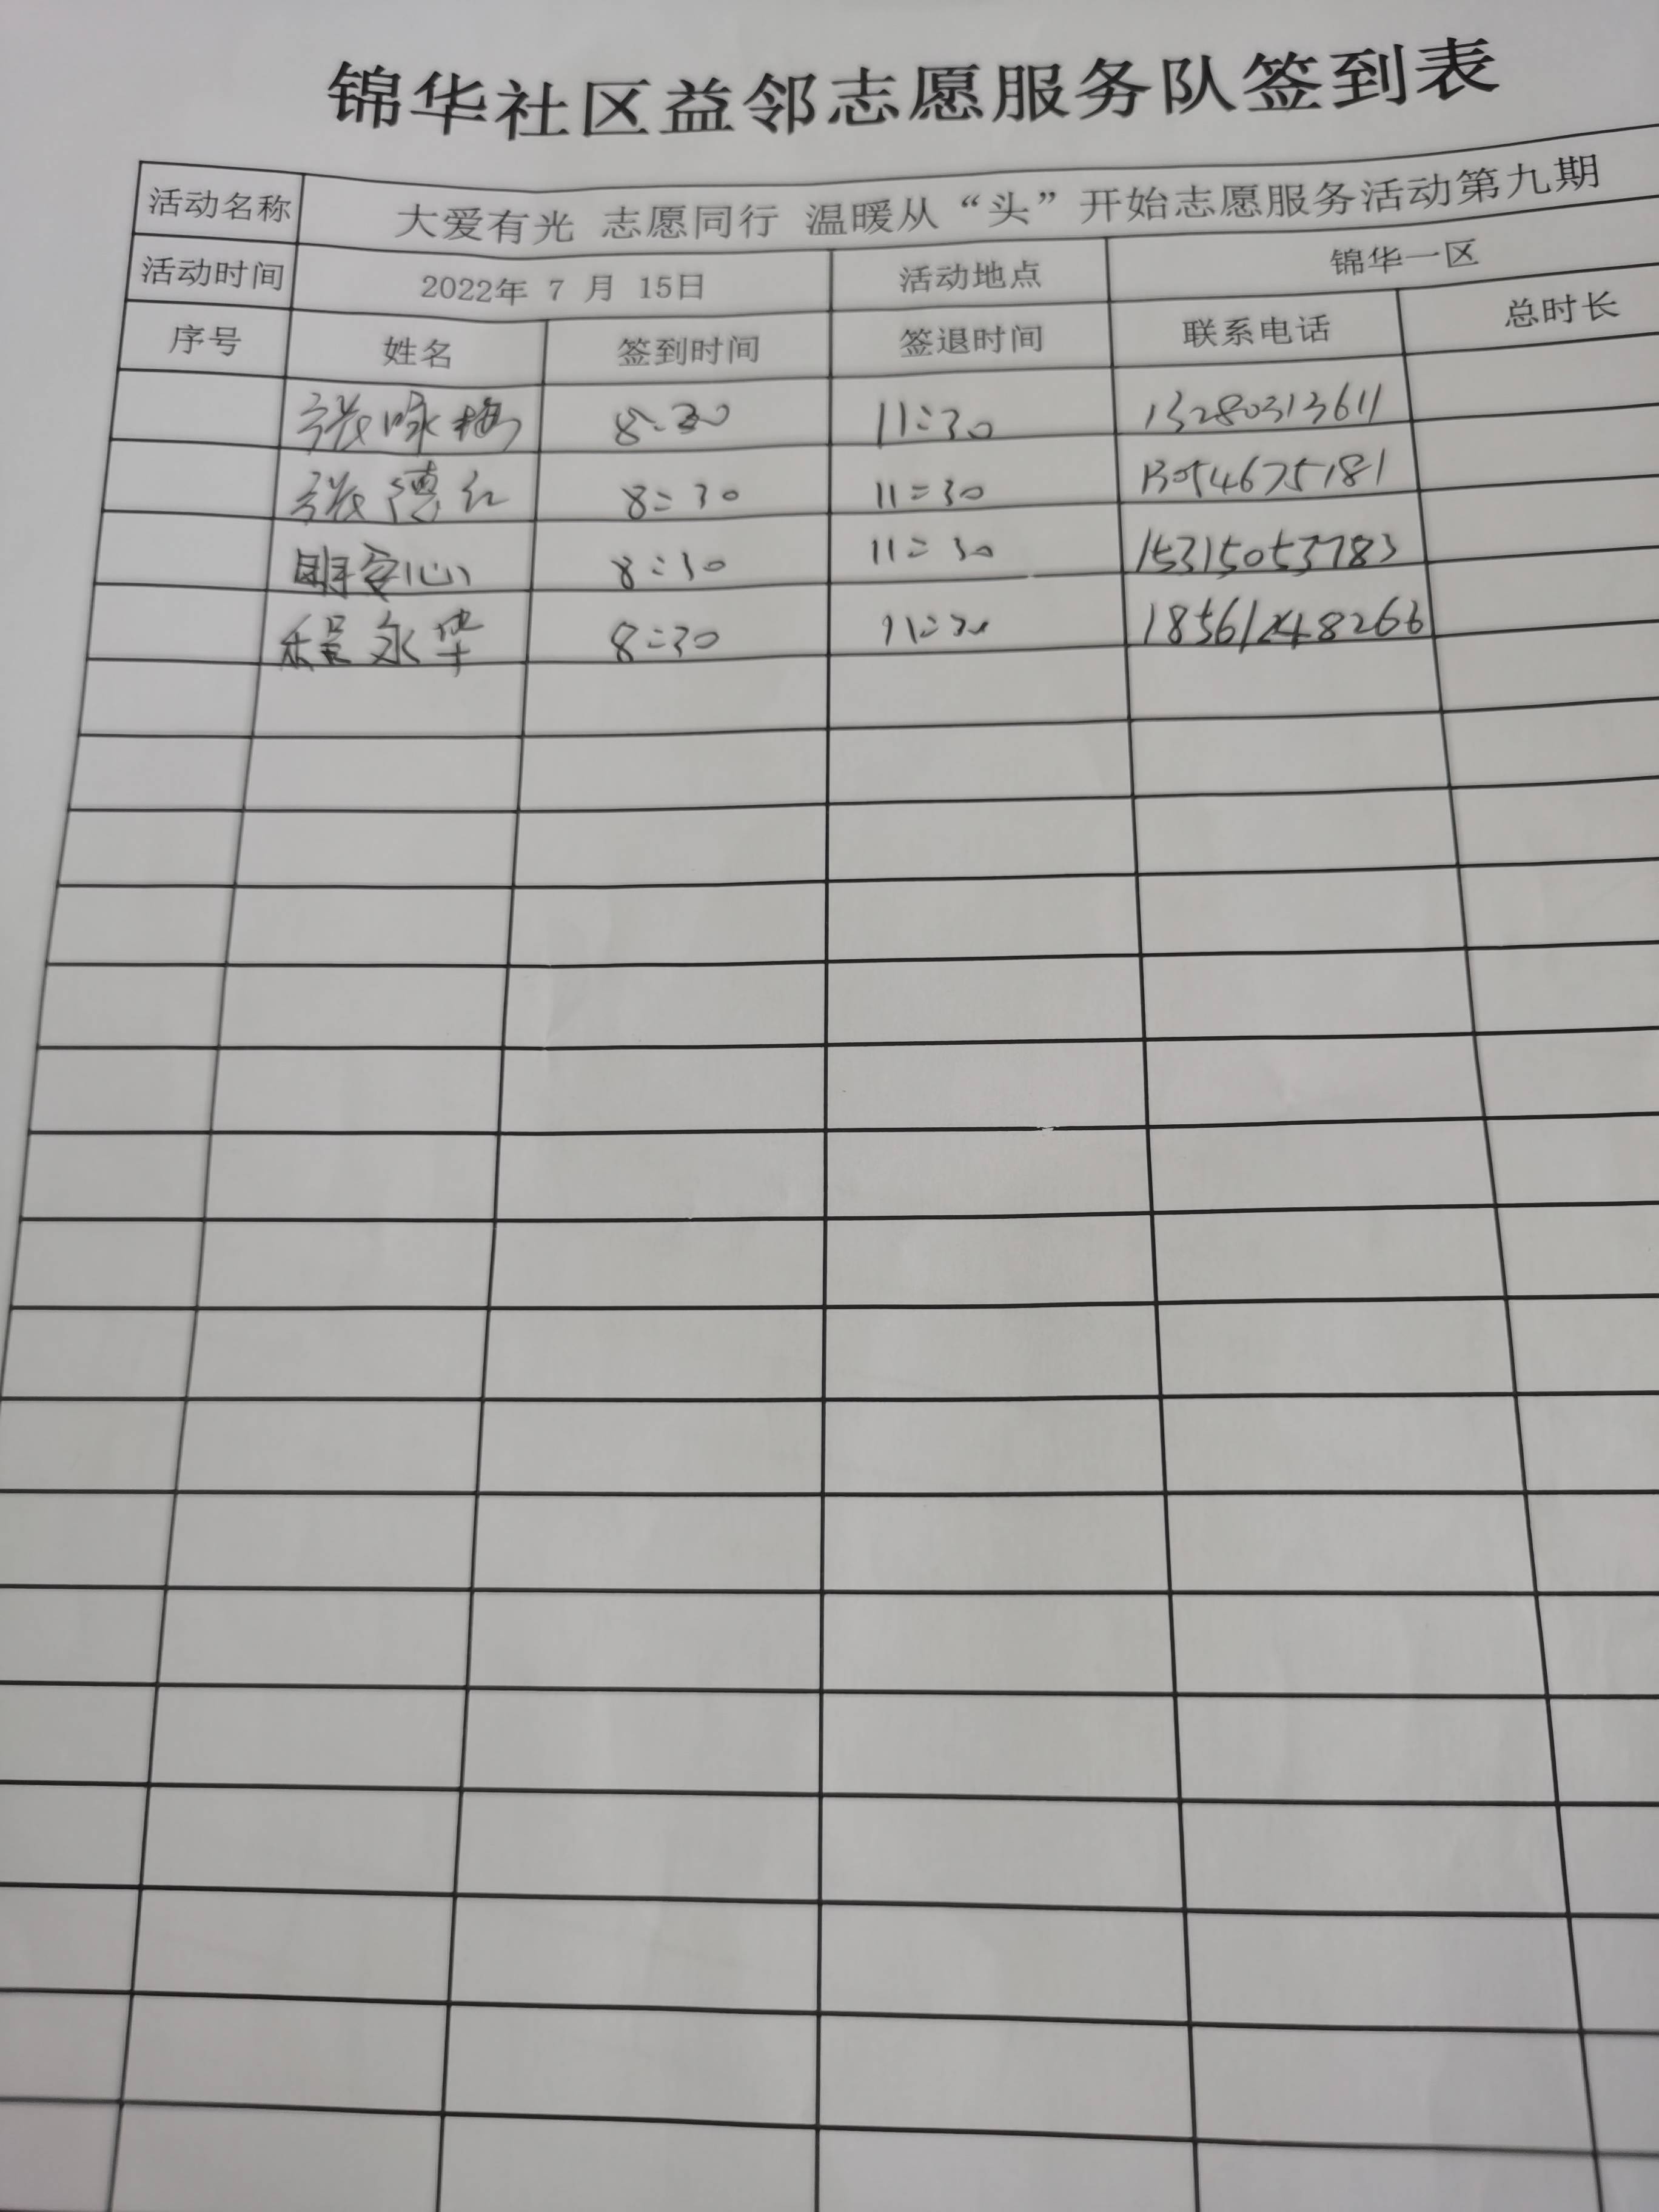 锦华社区益邻志愿服务队签到表
活动名称 大爱有光 志愿同行 温暖从“头”开始志愿服务活动第九期
活动时间 2022年 7 月 15日 活动地点 锦华一区
序号 姓名 签到时间 签退时间 联系电话 总时长
张咏梅 8:30 11:30 13280313611
张德红 8:30 11:30 13054675181
8:30 11:30 15315053783
程永华 8:30 11:30 18561248266